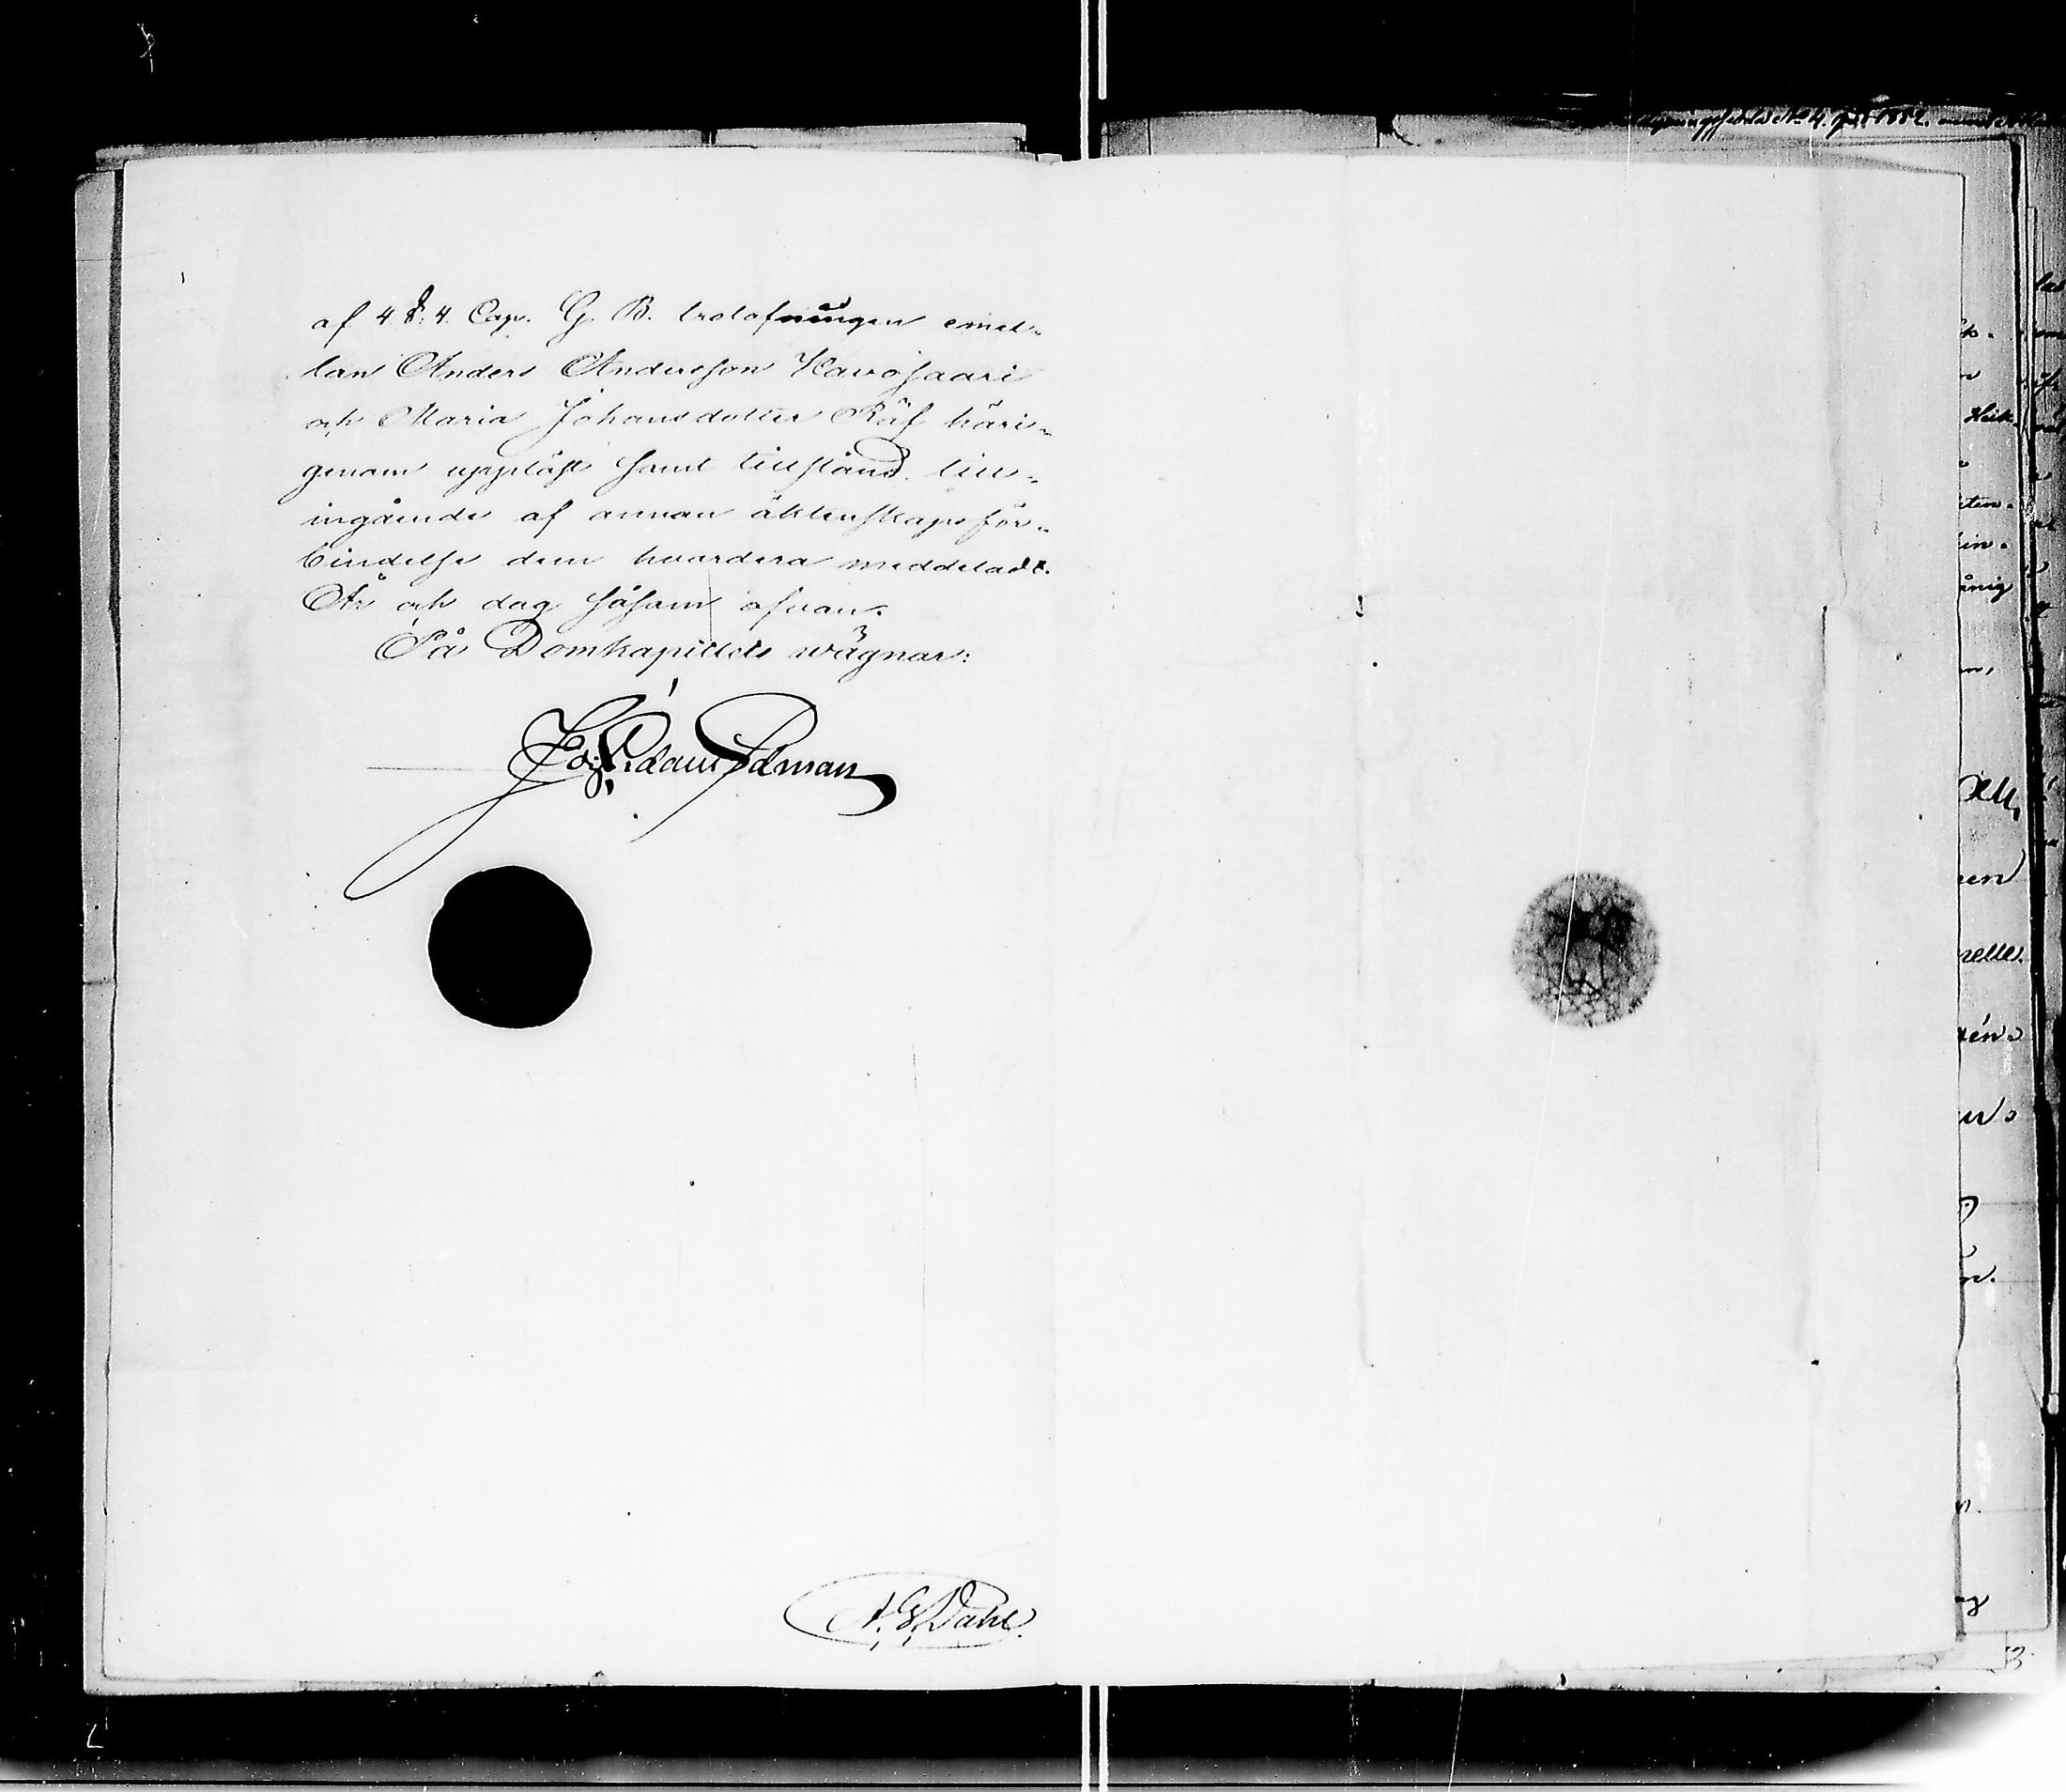 af 4 §. 4. Cap. G. B. trolofningen emel-
lan Anders Andersson Kavosaari
och Maria Johansdotter Räf häri-
genom upplöst samt tillstånd till
ingående af annan äktenskaps för-
bindelse dem hvardera meddeladt.
År och dag såsom ofvan.
På Domkapitlets wägnar:
A. G. Dahl.